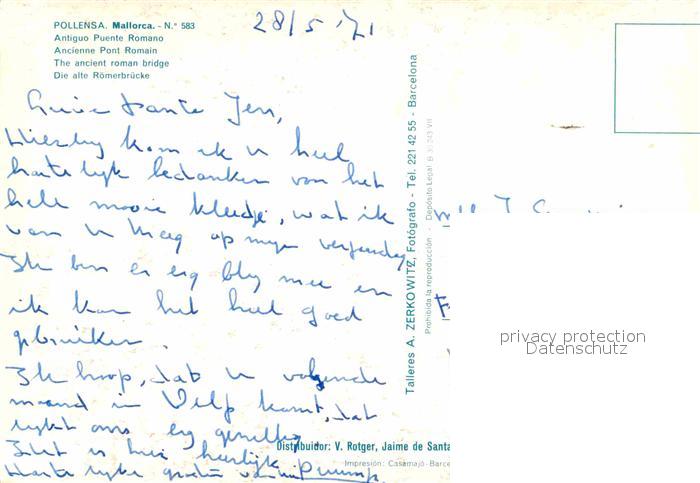 POLLENSA. Mallorca. - N.° 583
Antiguo Puente Romano
Ancienne Pont Romain
The ancient roman bridge
Die alte Römerbrücke
28/5 '71
Lieve tante Jen,
Hierbij kom ik u heel
hartelijk bedanken van het
hele mooie kleedje, wat ik
van u kreeg op mijn verjaardag
Ik ben er erg blij mee en
ik kan het heel goed
gebruiken.
Ik hoop, dat u volgende
maand in Velp komt, dat
lijkt ons erg gezellig.
Het is hier heerlijk.
Hartelijke groeten van
Talleres A. ZERKOWITZ, Fotógrafo - Tel. 221 42 55 - Barcelona
Prohibida la reproducción - Depósito Legal B
Distribuidor: V. Rotger, Jaime de Santa
Impresión: Casamajó-Barce
privacy protection
Datenschutz